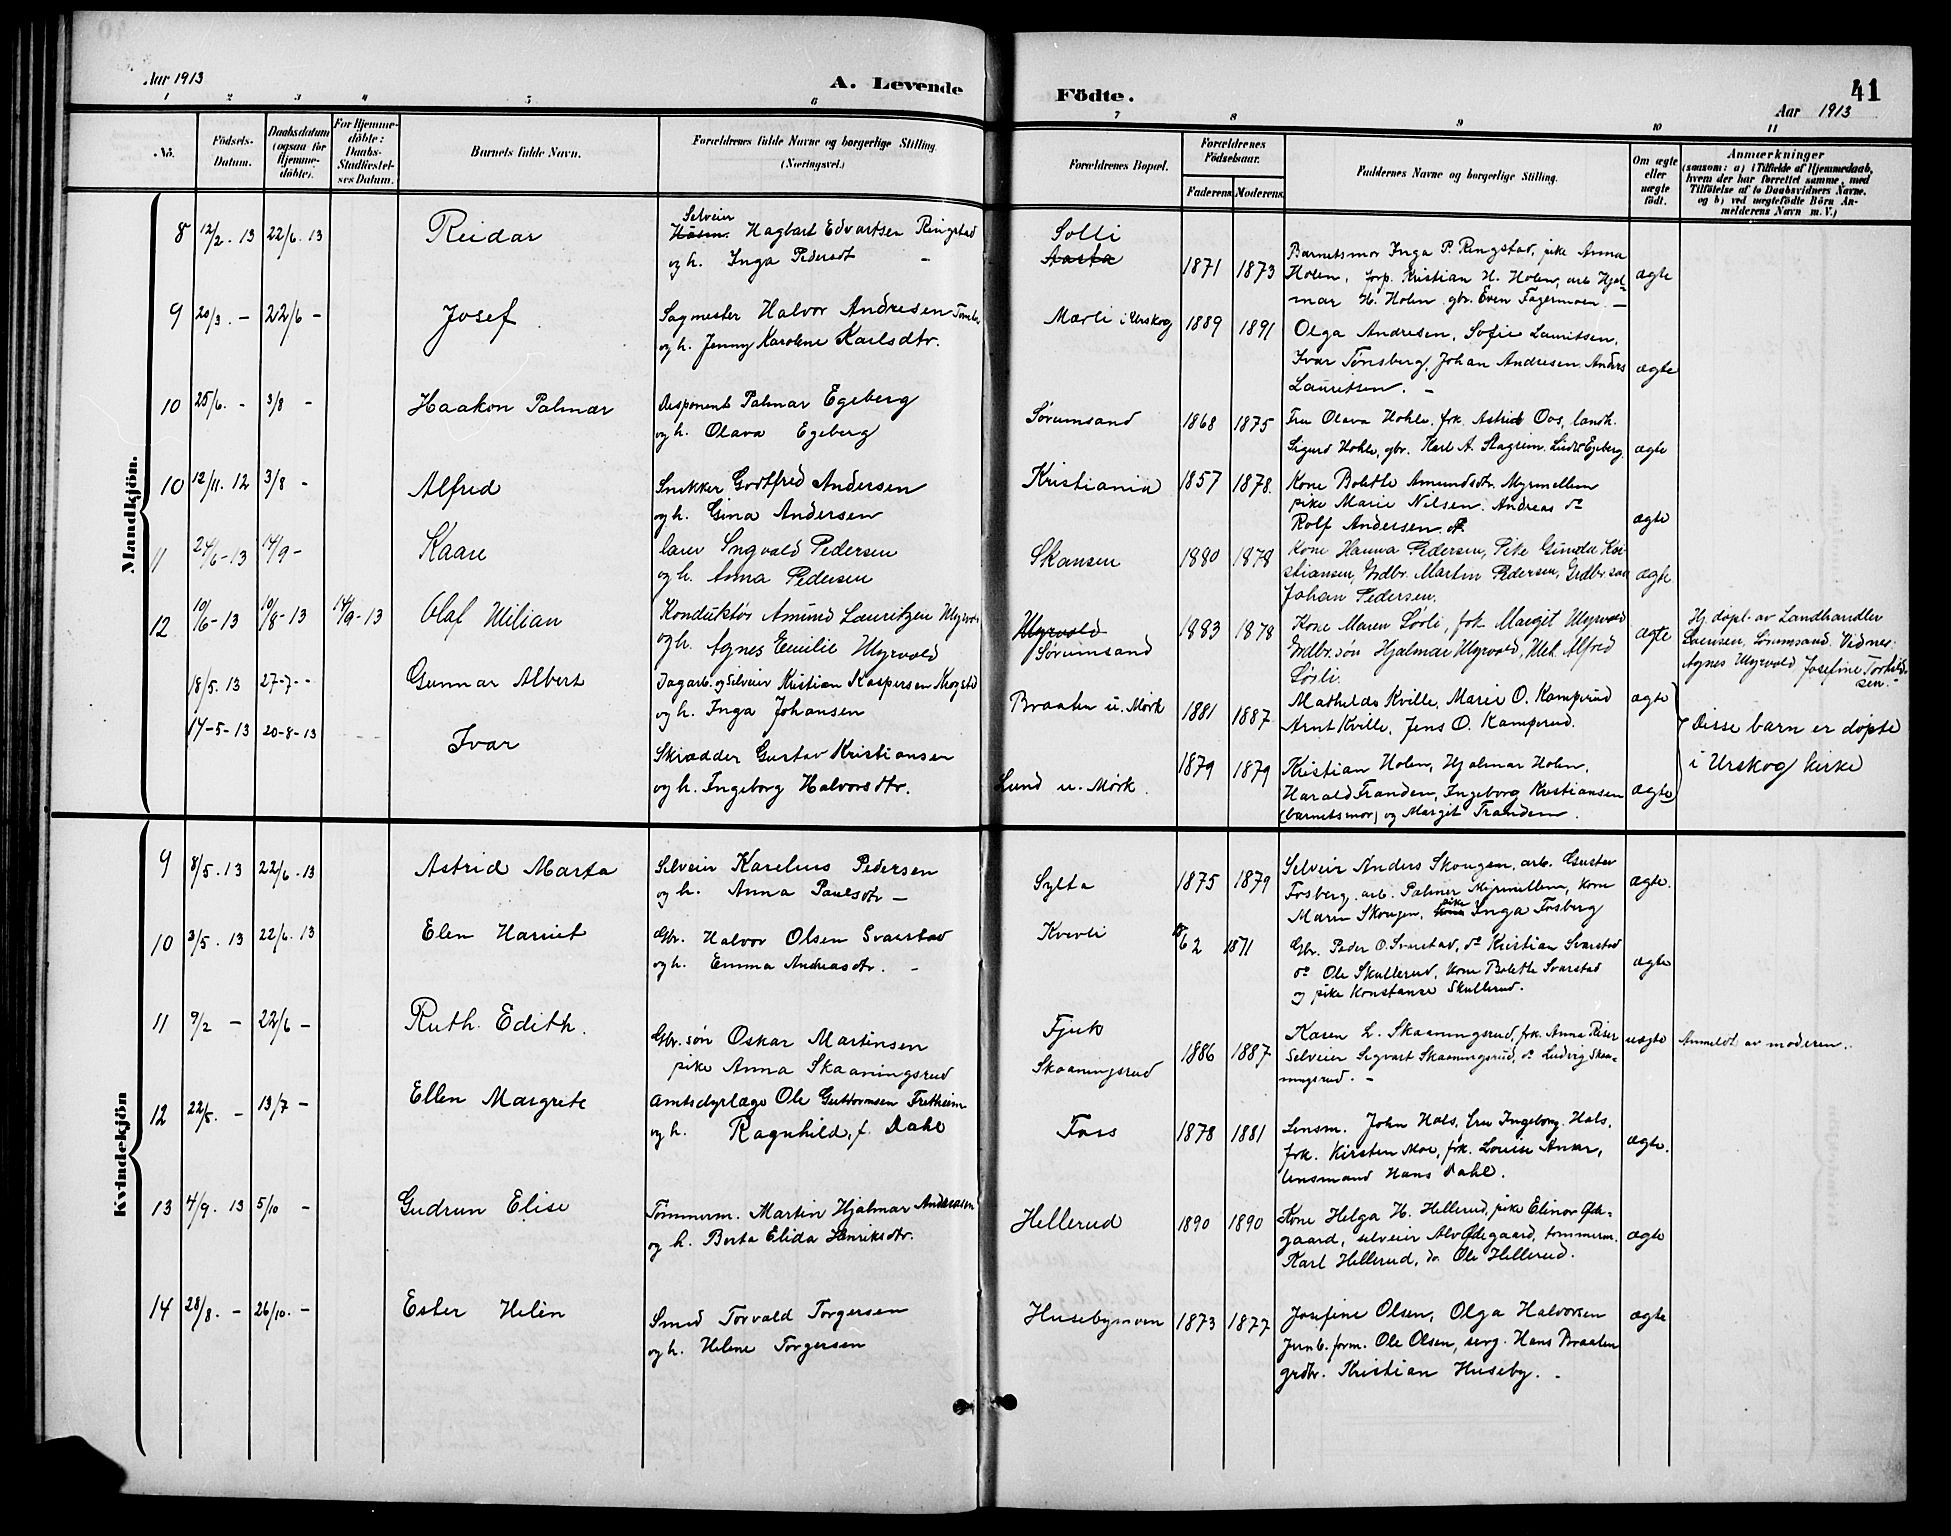 Aar 1913
A. Levende Födte.
41
Aar 1913
1 2 3 4 5 6 7 8 9 10 11
No.
Födsels-Datum.
Daabsdatum (ogsaa for Hjemme-döbte).
For Hjemme-döbte: Daabs-Stadfæstel-ses Datum.
Barnets fulde Navn.
Forældrenes fulde Navne og borgerlige Stilling. (Næringsvei.)
Forældrenes Bopæl.
Forældrenes Födselsaar.
Faderens Moderens
Faddernes Navne og borgerlige Stilling.
Om ægte eller uægte födt.
Anmærkninger
(saasom: a) i Tilfælde af Hjemmedaab, hvem der har forrettet samme, med Tilföielse af to Daabsvidners Navne, og b) ved uægtefödte Börn An-melderens Navn m. V.)
Mandkjön.
8 12/2. 13 22/6. 13 Reidar
Selveier
Hagbart Edvartsen Ringstad
og h. Inga Pedersdt —
Solli
Aasta
1871 1873
Barnetsmor Inga P. Ringstad, pike Anna
Holen, forp. Kristian H. Holen, arb. Hjal-
mar H. Holen, gbr. Even Fagermoen. —
ægte
9 20/3. — 22/6 — Josef
Sagmester Halvor Andresen
og h. Jenny Karoline Karlsdtr.
Mærli i Urskog
1889 1891
Olga Andresen, Sofie Lauritsen,
Ivar Tønsberg, Johan Andresen, Anders
Lauritsen. —
ægte
10 25/6. - 3/8 - Haakon Palmar
Disponent Palmar Egeberg
og h. Olava Egeberg
Sørumsand
1868 1875
Fru Olava Hohle, frk. Astrid Oos, landh.
Sigurd Hohle, gbr. Karl A. Slagrem. Egeberg.
ægte
10 12/11. 12 3/8 - Alfred
Snekker Godtfred Andersen
og h. Gina Andersen
Kristiania
1857 1878.
Kone Bolette Amundsdtr. Myrmellem
pike Marie Nilsen. Andreas do
Rolf Andersen. do
ægte
11 24/6-13 14/9- Kaare
Ingvald Pedersen
og h. Anna Pedersen
Skansen
1880 1878
Kone Hanna Pedersen, Pike Gunda Kri-
stiansen, Grdbr. Martin Pedersen, Grdbr.søn
Johan Pedersen.
ægte
12 10/6-13 10/8-13 14/9-13 Olaf Milian
Konduktør Amund Lauritzen Myrvold
og h. Agnes Emilie Myrvold
Myrvold
Sørumsand
1883 1878
Kone Maren Sørli, frk. Margit Myrvold
Grdbr.søn Hjalmar Myrvold, Alfred
Sørli.
ægte
Hj. døpt av Landhandler
Laursen, Sørumsand. Vidner:
Agnes Myrvold Josefine Torkild-
sen.
18/5. 13 27-7-- Gunnar Albert
Dagarb. og Selveier Kristian Kaspersen Krogstad
og h. Inga Johansen
Braaten u. Mørk
1881 1887
Mathilde Kville, Marie O. Kamperud
Arnt Kville, Jens O. Kamperud.
ægte
14-5-13 20-8-13 Ivar
Skrædder Gustav Kristiansen
og h. Ingeborg Halvorsdtr.
Lund u. Mørk.
1879 1879
Kristian Holen, Hjalmar Holen,
Harald Tranden, Ingeborg Kristiansen
(barnetsmor) og Margit Tranden.
ægte
Disse barn er døpte
i Urskog kirke
Kvindekjön
9 8/5. 13 22/6. 13 Astrid Marta
Selveier Karelius Pedersen
og h. Anna Paulsdtr —
Sylta
1875 1879
Selveier Anders Skougen, arb. Gustav
Fosberg, arb. Palmer Myrmellem, kone
Maren Skougen, pike Inga Fosberg
ægte.
10 3/5. 13 22/6. 13 Elen Harriet
Gbr. Halvor Olsen Svarstad
og h. Emma Andreasdtr. -
Kvevli
62 1871
Gbr. Peder O. Svarstad, do Kristian Svarstad
do Ole Skullerud, kone Bolette Svarstad
og pike Konstanse Skullerud.
ægte
11 9/2 — 22/6 — Ruth Edith.
Gbr. søn Oskar Martinsen
pike Anna Skaaningsrud
Fjuk
Skaaningsrud
1886 1887
Karen L. Skaaningsrud, frk. Anna Riser
Selveier Sigvart Skaaningsrud, do Ludvig Skaa-
ningsrud. —
uægte
Anmeldt av moderen.
12 22/5. — 13/7 — Ellen Margrete
Amtsdyrlæge Ole Guttormsen Fretheim
og h. Ragnhild, f. Dahl
Fors
1878 1881
Lensm. John Hals, fru Ingeborg Hals,
frk. Kirsten Moe, frk. Louise Anker,
lensmand Hans Dahl.
ægte.
13 4/9. 13 5/10 — Gudrun Elise
Tømmerm. Martin Hjalmar Andreassen
og h. Berta Elida Henriksdtr.
Hellerud
1890 1890
Kone Helga H. Hellerud, pike Elinor Øde-
gaard, selveier Alv Ødegaard, tømmerm.
Karl Hellerud, do. Ole Hellerud.
ægte
14 28/8. — 26/10. — Ester Helèn
Smed Torvald Torgersen
og h. Helene Torgersen
Husebymoen
1873 1877
Josefine Olsen, Olga Halvorsen
Jernb. form. Ole Olsen, serg. Hans Braaten
grdbr. Kristian Huseby. -
ægte